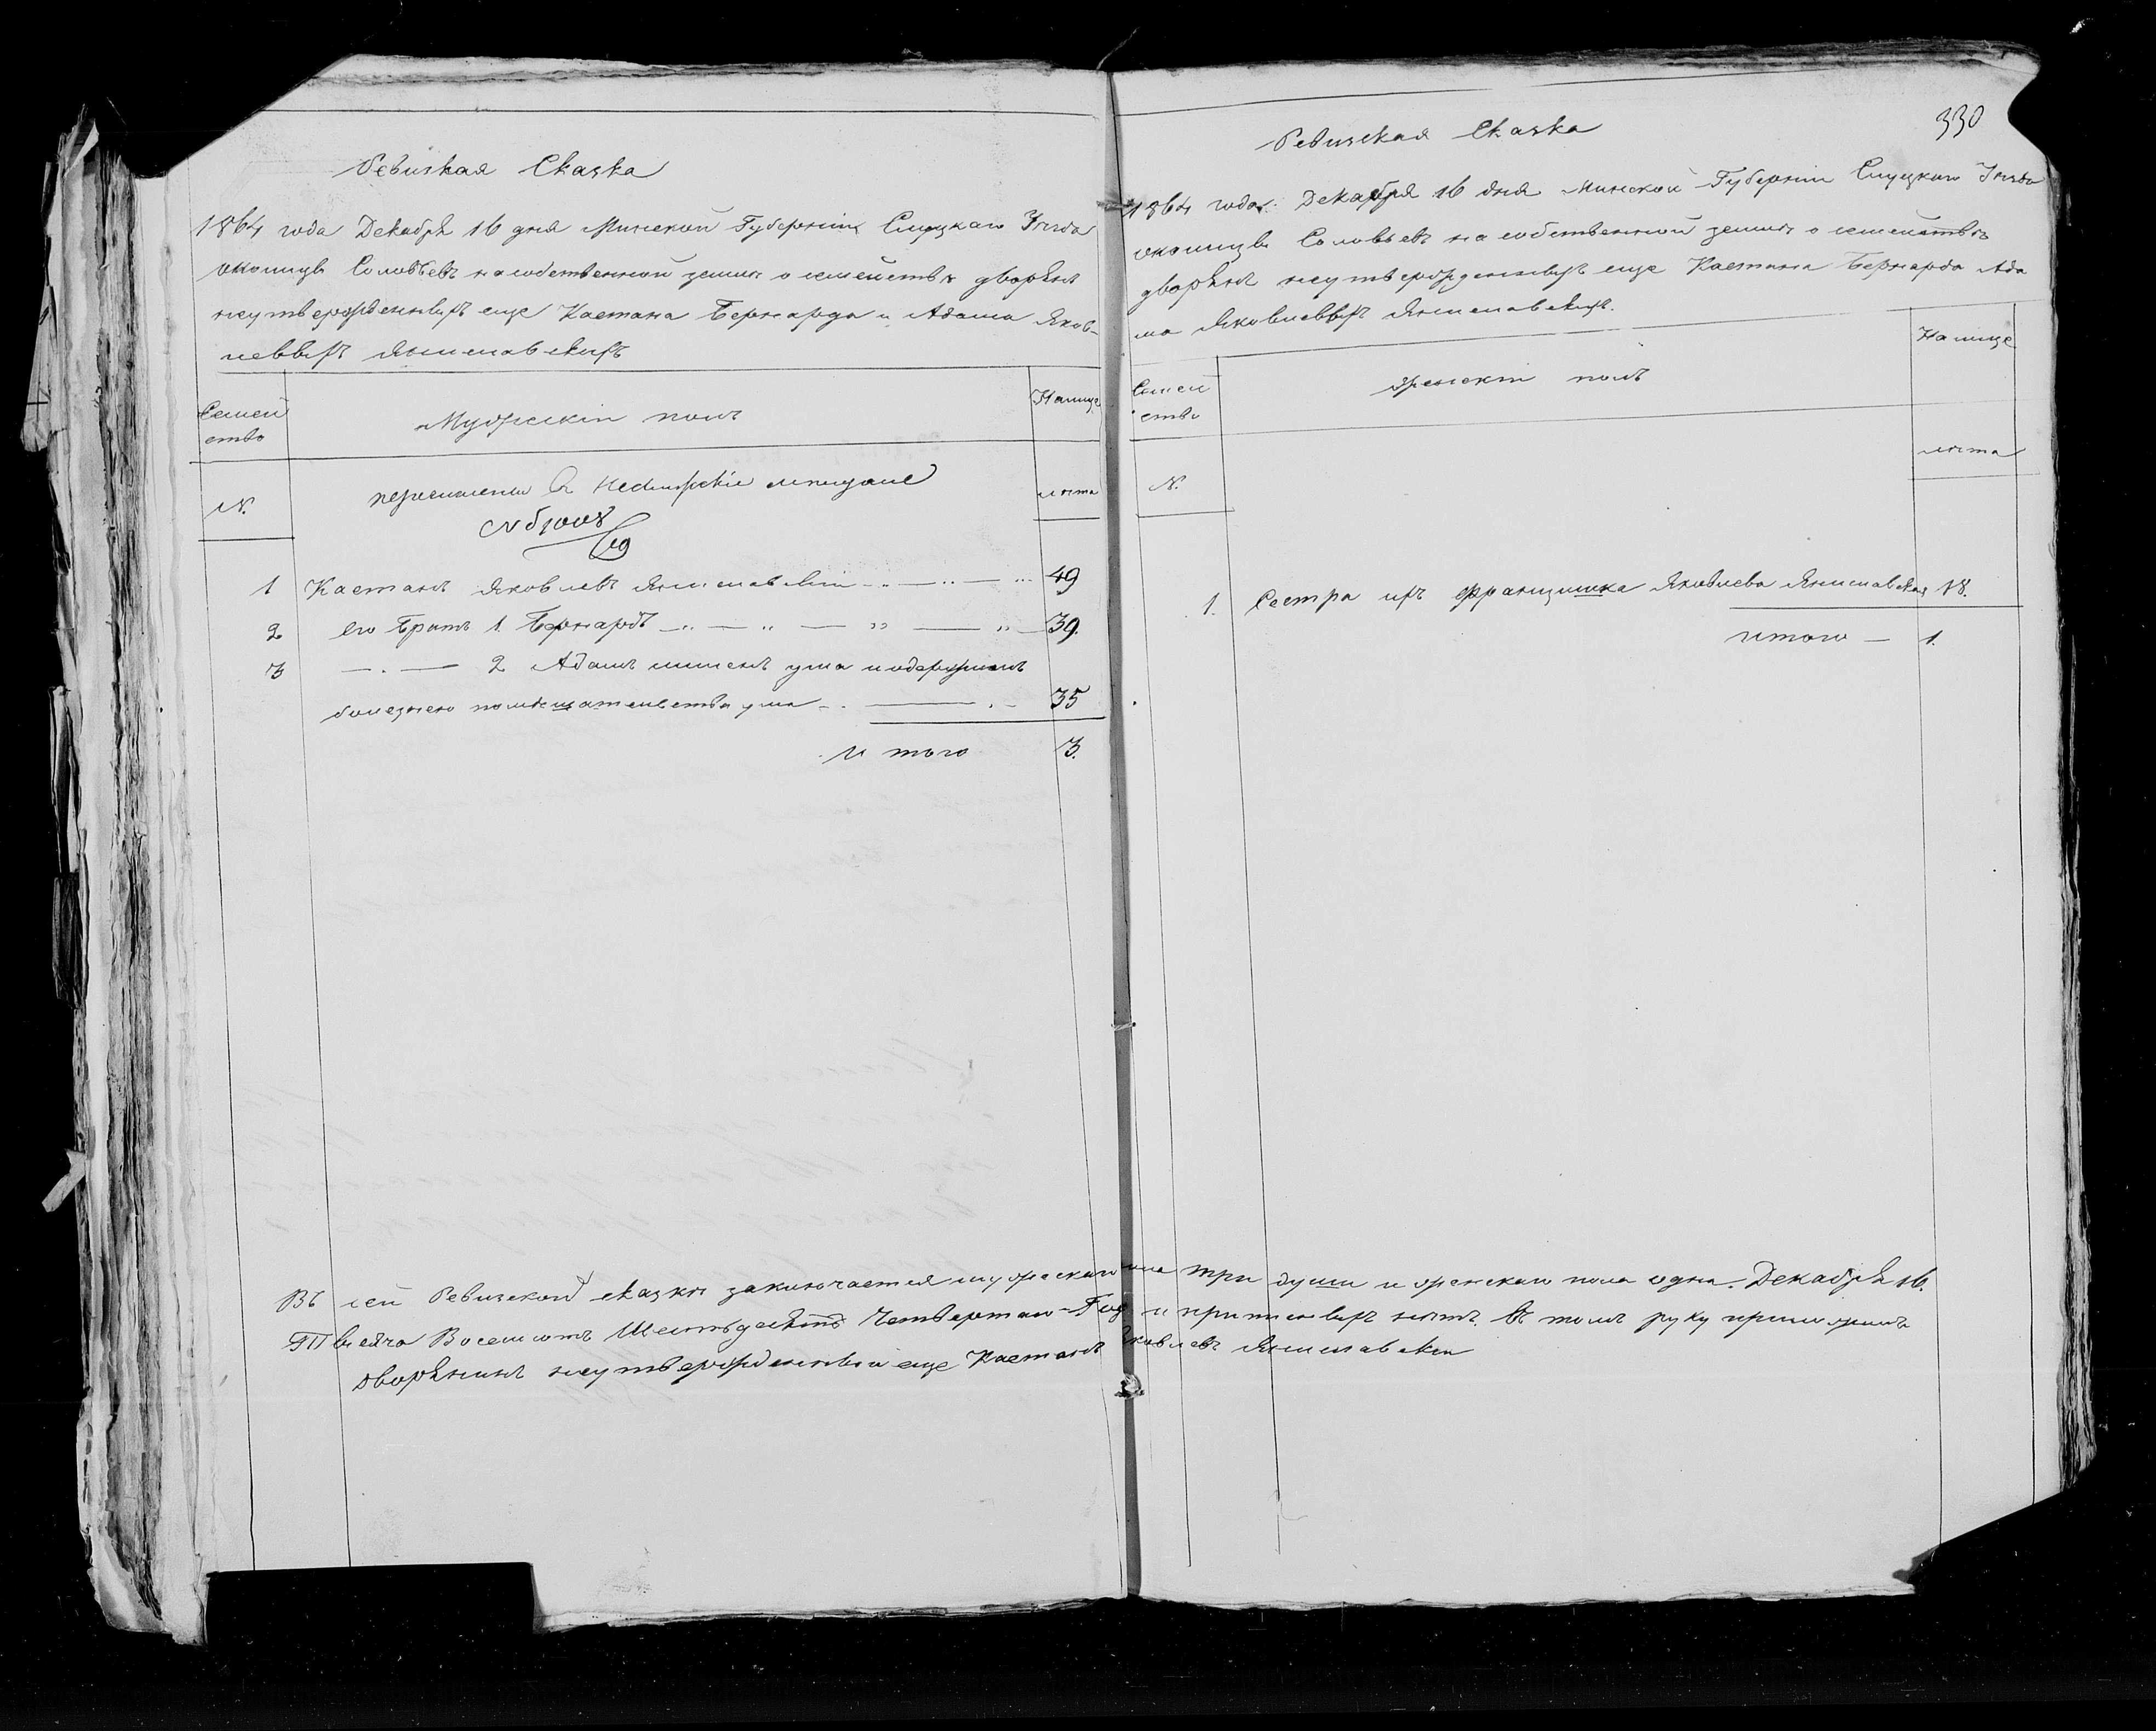 Ревизкая Сказка
1864 года Декабря 16 дня Минской Губерніи Слуцкаго Уѣзда
околицы Соловьевъ на собственной землѣ о семействѣ дворянъ
неутвержденныхъ еще Каетана Бернарда и Адама Яков-
левыхъ
Семей
ство
Мужескій полъ
Налице
№.
перечислены въ мещане
лѣта
1 Каетанъ Яковлевъ 49
2 Его Братъ 1. Бернардъ 39.
3 2 Адамъ лишенъ ума и одержимъ
болезнею помешательства ума 35
И того 3.
330
Ревизская Сказка
1864 года. Декабря 16 дня Минской Губерніи Слуцкаго Уѣзда
околицы Соловьевъ на собственной землѣ о семействѣ
дворянъ неутвержденныхъ еще Каетана Бернарда Ада
ма Яковлевыхъ
Семей
ство
Женскій полъ
Налице
№.
лѣта
1. Сестра ихъ Францишка Яковлева 18.
итого — 1.
Въ сей Ревизской сказкѣ заключается мужескаго пола три души и женскаго пола одна. Декабря 16.
Тысяча Восемсотъ Шестьдесятъ Четвертаго Год и приписныхъ нѣтъ. въ томъ руку приложилъ
дворянинъ неутвержденный еще Каетанъ Яковлевъ